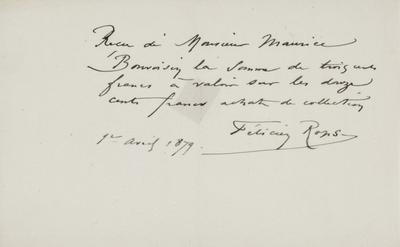 Recu de Monsieur Maurice
Bonvoisin la somme de trois cents
francs à valoir sur les douze
cents francs achats de collection
Félicien Rops
1er avril 1879